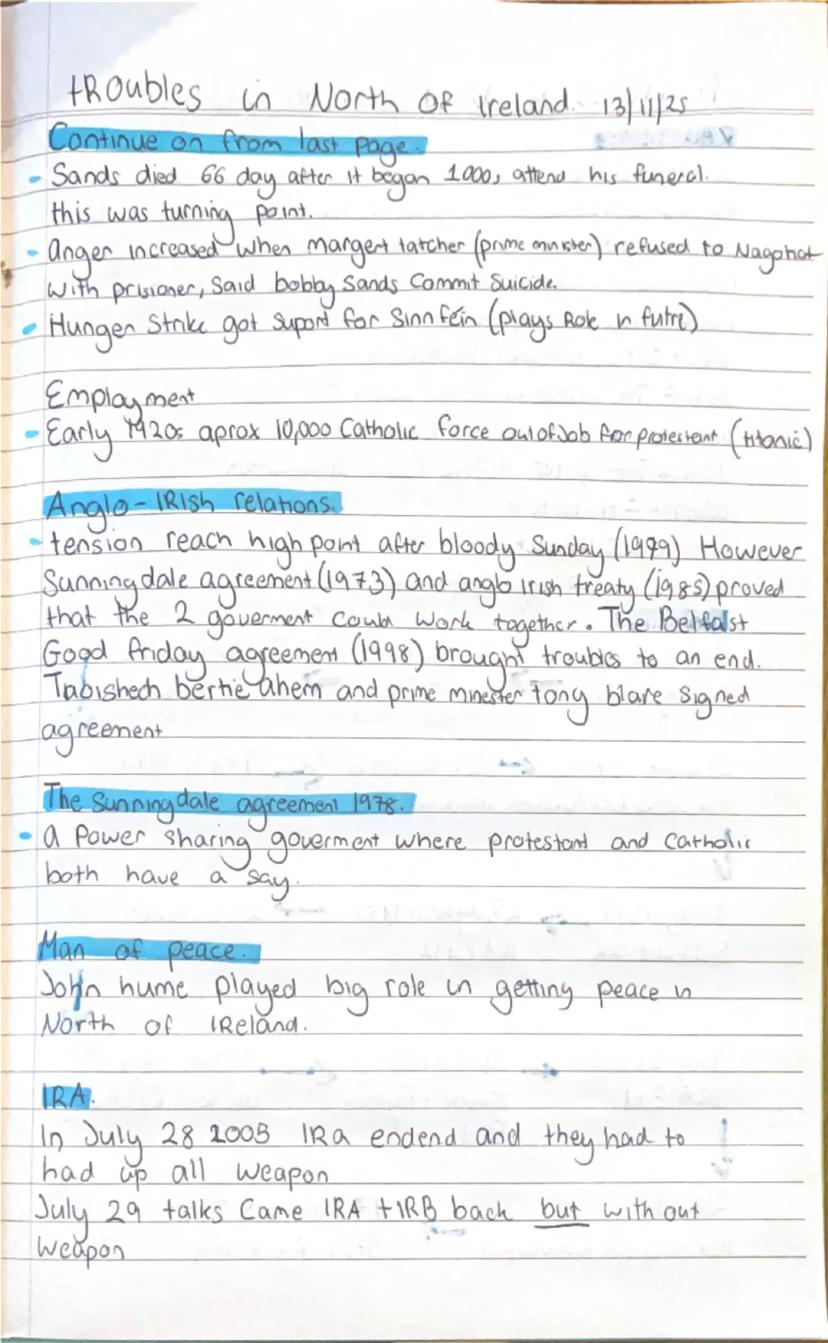 tRoubles in North Of Ireland. 13/11/25
Continue on from last page.
- Sands died 66 day after it began 1000s attend his funeral.
this was turning point.
- anger increased when margert tatcher (prime minster) refused to Nagohat
with prisioner, Said bobby Sands Commit Suicide.
- Hunger Strike got suport for Sinn féin (plays Role in futre)
Employment
- Early 1920s aprox 10,000 Catholic force out of Job for protestant (titanic)
Anglo-IRish relations.
- tension reach high point after bloody Sunday (1979) However
Sunningdale agreement (1973) and anglo irish treaty (1985) proved
that the 2 goverment could work together. The Belfast
Good friday agreement (1998) brought troubles to an end.
Tabishech bertie ahern and prime minester tony blare signed
agreement
The Sunningdale agreement 1978.
- a Power sharing goverment where protestant and Catholic
both have a say.
Man of peace.
John hume played big role in getting peace in
North of IReland.
IRA.
In July 28 2005 IRa endend and they had to
had up all weapon
July 29 talks Came IRA + IRB back but with out
weapon